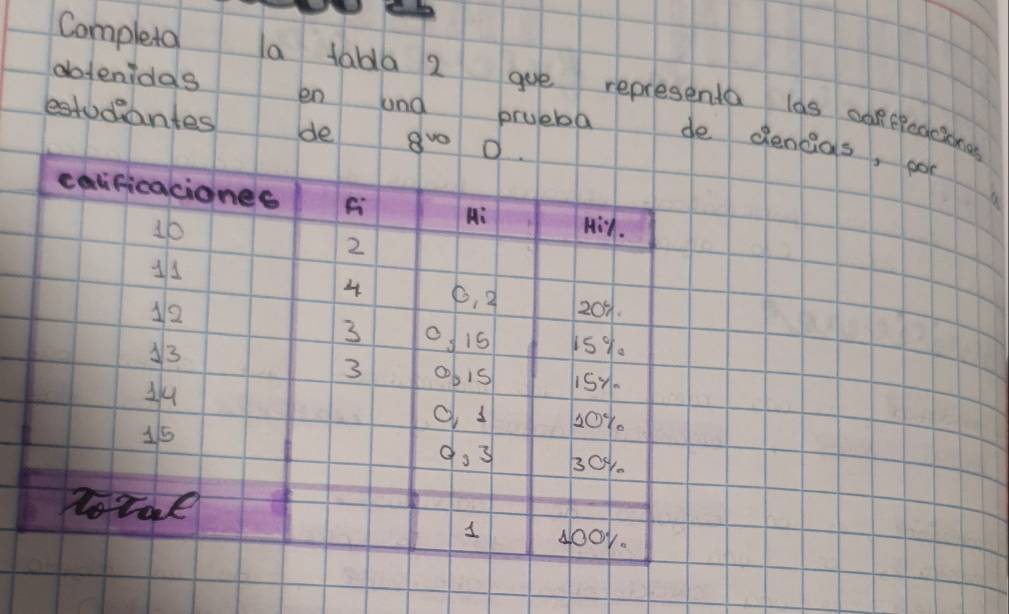 Completa la tabla 2 que representa las calificaciones
obtenidas en una prueba de ciencias, por
estudiantes de 8vo D.
calificaciones fi Hi Hi%.
10 2
11 4 0,2 20%.
12 3 0,15 15%.
13 3 0,15 15%.
14 0,1 10%.
15 0,3 30%.
Total 1 100%.